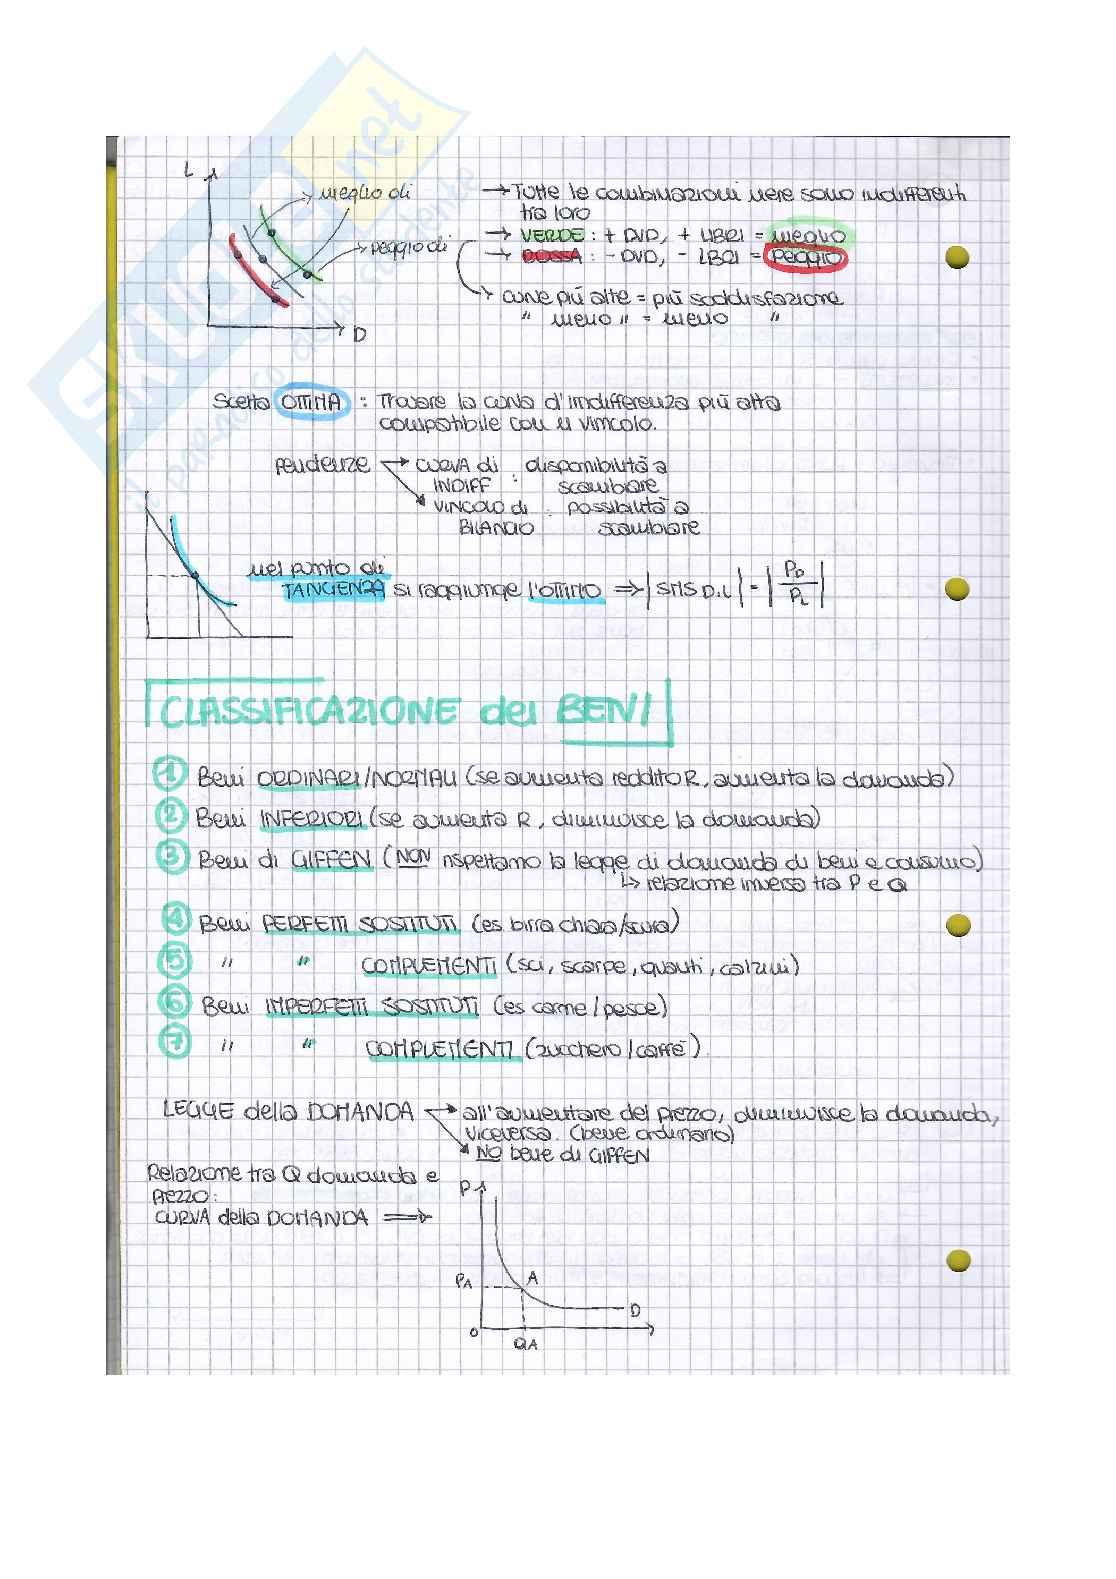 SKUOLA.net
il paradiso dello studente
L
meglio di
peggio di
D
→ Tutte le combinazioni nere sono indifferenti
tra loro
→ VERDE : + DVD, + LIBRI = MEGLIO
→ ROSSA : - DVD, - LIBRI = PEGGIO
→ curve più alte = più soddisfazione
" meno " = meno "
Scelta OTTIMA : Trovare la curva d'indifferenza più alta
compatibile con il vincolo.
pendenze → CURVA di INDIFF : disponibilità a scambiare
→ VINCOLO di BILANCIO : possibilità a scambiare
nel punto di
TANGENZA si raggiunge l'OTTIMO ⇒ |SMS D,L| = |PD/PL|
CLASSIFICAZIONE dei BENI
1 Beni ORDINARI/NORMALI (se aumenta reddito R, aumenta la domanda)
2 Beni INFERIORI (se aumenta R, diminuisce la domanda)
3 Beni di GIFFEN (NON rispettano la legge di domanda di beni e consumo)
↳ relazione inversa tra P e Q
4 Beni PERFETTI SOSTITUTI (es birra chiara/scura)
5 " " COMPLEMENTI (sci, scarpe, guanti, calzini)
6 Beni IMPERFETTI SOSTITUTI (es carne/pesce)
7 " " COMPLEMENTI (zucchero/caffè)
LEGGE della DOMANDA → all'aumentare del prezzo, diminuisce la domanda,
viceversa. (bene ordinario)
→ NO bene di GIFFEN
Relazione tra Q domanda e
prezzo:
CURVA della DOMANDA ⇒
P
PA
A
D
0
QA